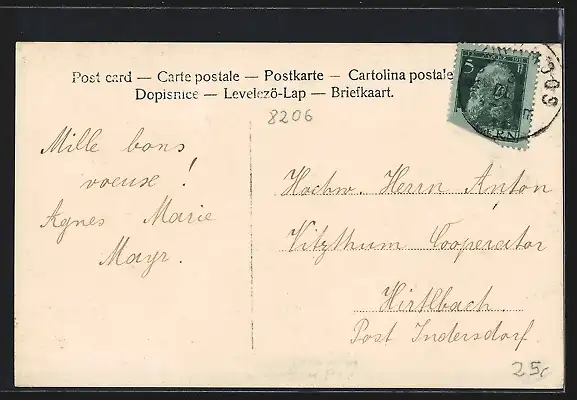 Post card — Carte postale — Postkarte — Cartolina postale
Dopisnice — Levelező-Lap — Briefkaart.
8206
Mille bons
voeuse !
Agnes Marie
Mayr.
5 Pf
BAYERN
Hochw. Herrn Anton
Vitzthum Cooperator
Hirtlbach.
Post Indersdorf.
25.